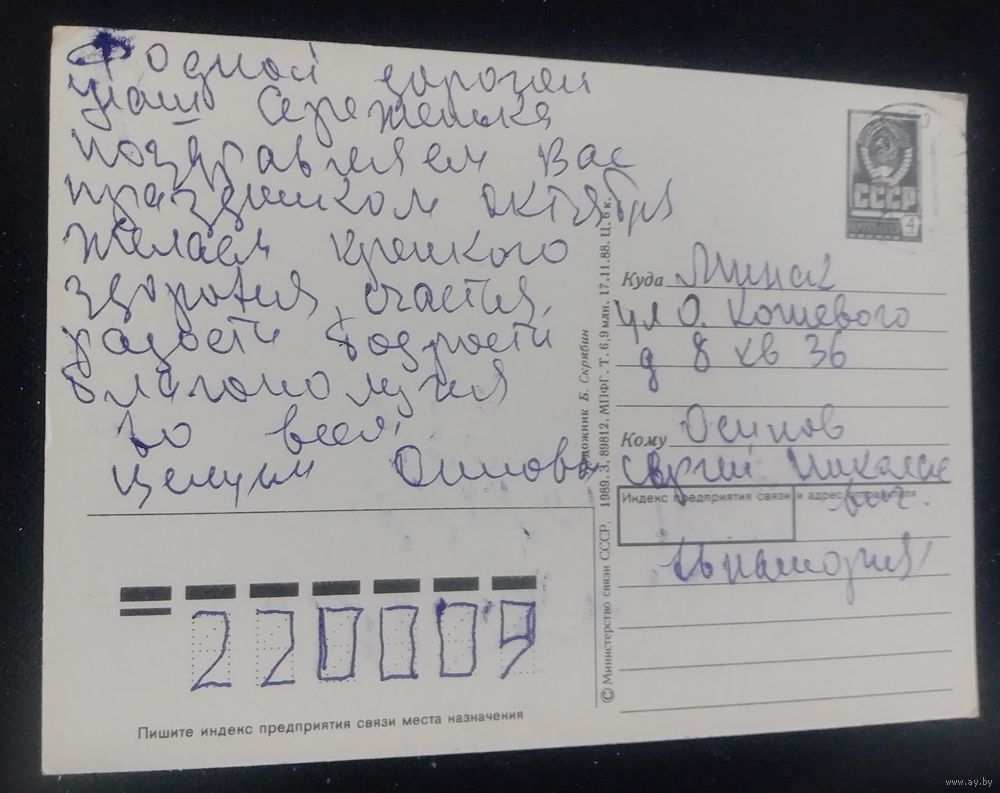 Родной дорогой
наш Сереженька
поздравляем Вас
праздником октября
желаем крепкого
здоровья, счастья,
радости бодрости
благополучия
во всем,
целуем Осиповы
СССР
4
Куда Минск
ул О. Кошевого
д 8 кв 36
Кому Осипов
Сергей Николае
вич.
Индекс предприятия связи и адрес отправителя
Евпатория
220009
Пишите индекс предприятия связи места назначения
© Министерство связи СССР. 1989. З. 89812. МПФГ. Т. 6,9 млн. 17.11.88. Ц. 6 к.
Художник Б. Скрябин
www.ay.by